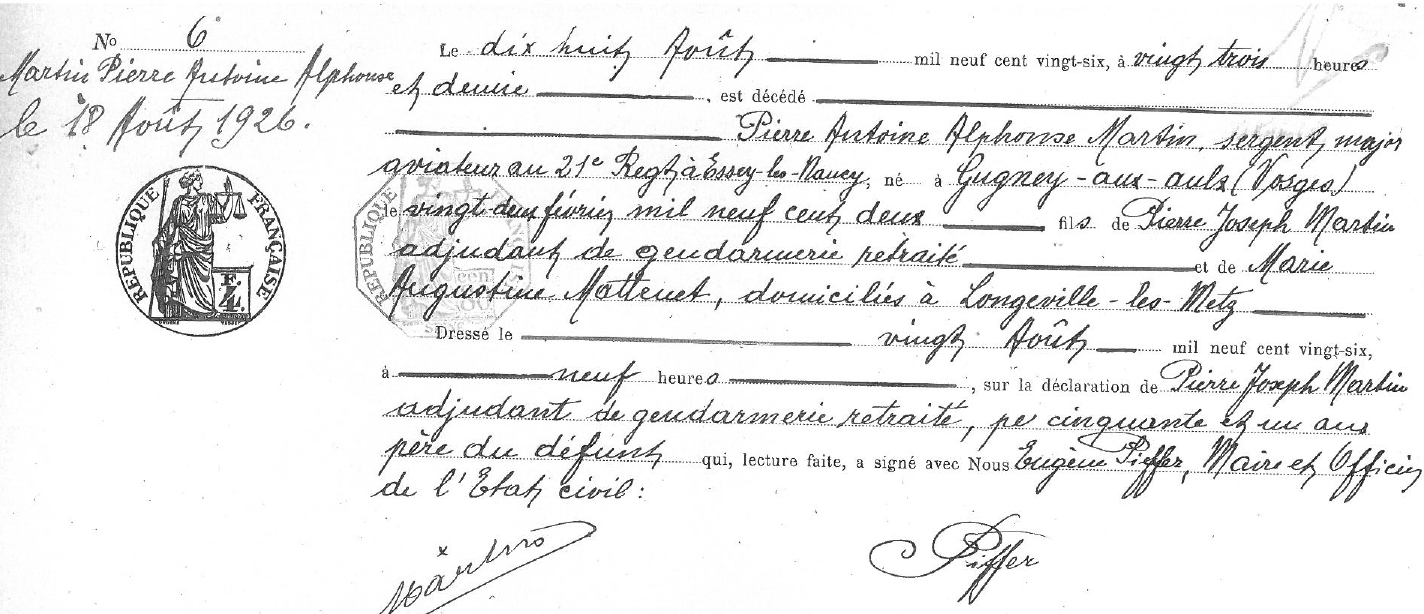 N° 6
Martin Pierre Antoine Alphonse
le 18 Août 1926.
RÉPUBLIQUE FRANÇAISE
Le dix huit Août mil neuf cent vingt-six, à vingt trois heures
et demie, est décédé
Pierre Antoine Alphonse Martin, sergent major
aviateur au 21e Regt à Essey-les-Nancy, né à Gugney-aux-aulx (Vosges)
le vingt deux février mil neuf cent deux fils de Pierre Joseph Martin
adjudant de gendarmerie retraité et de Marie
Augustine Mattenet, domiciliés à Longeville-les-Metz
Dressé le vingt Août mil neuf cent vingt-six,
à neuf heures, sur la déclaration de Pierre Joseph Martin
adjudant de gendarmerie retraité, cinquante et un ans
père du défunt qui, lecture faite, a signé avec Nous Eugène Pieffer, Maire et Officier
de l'Etat civil :
Martin
Piffer